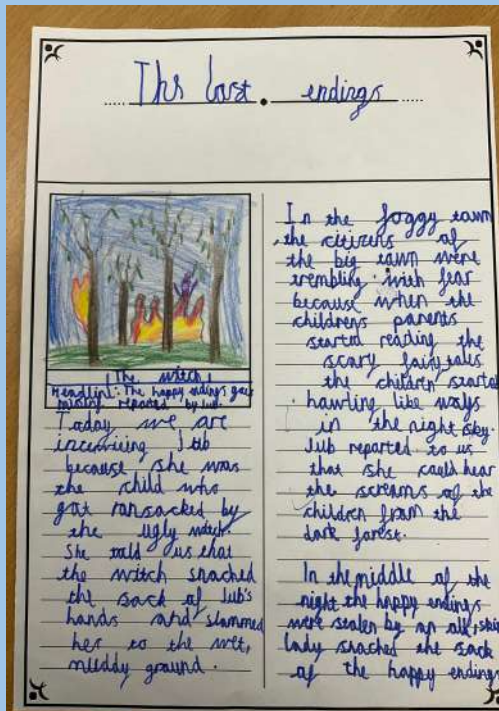 The last endings
The witch
Headline: The happy endings gone
missing reported by Jub.
Today we are
Jub
because she was
the child who
got ransacked by
the ugly witch.
She told us that
the witch snached
the sack of Jub's
hands and slammed
her to the wet,
muddy ground.
In the foggy town
the citizens of
the big town were
trembling with fear
because when the
childrens parents
started reading the
scary fairy tales
the children started
hawling like wolfs
in the night sky.
Jub reported to us
that she could hear
the screams of the
children from the
dark forest.
In the middle of the
night the happy endings
were stolen by an
lady snached the sack
of the happy endings